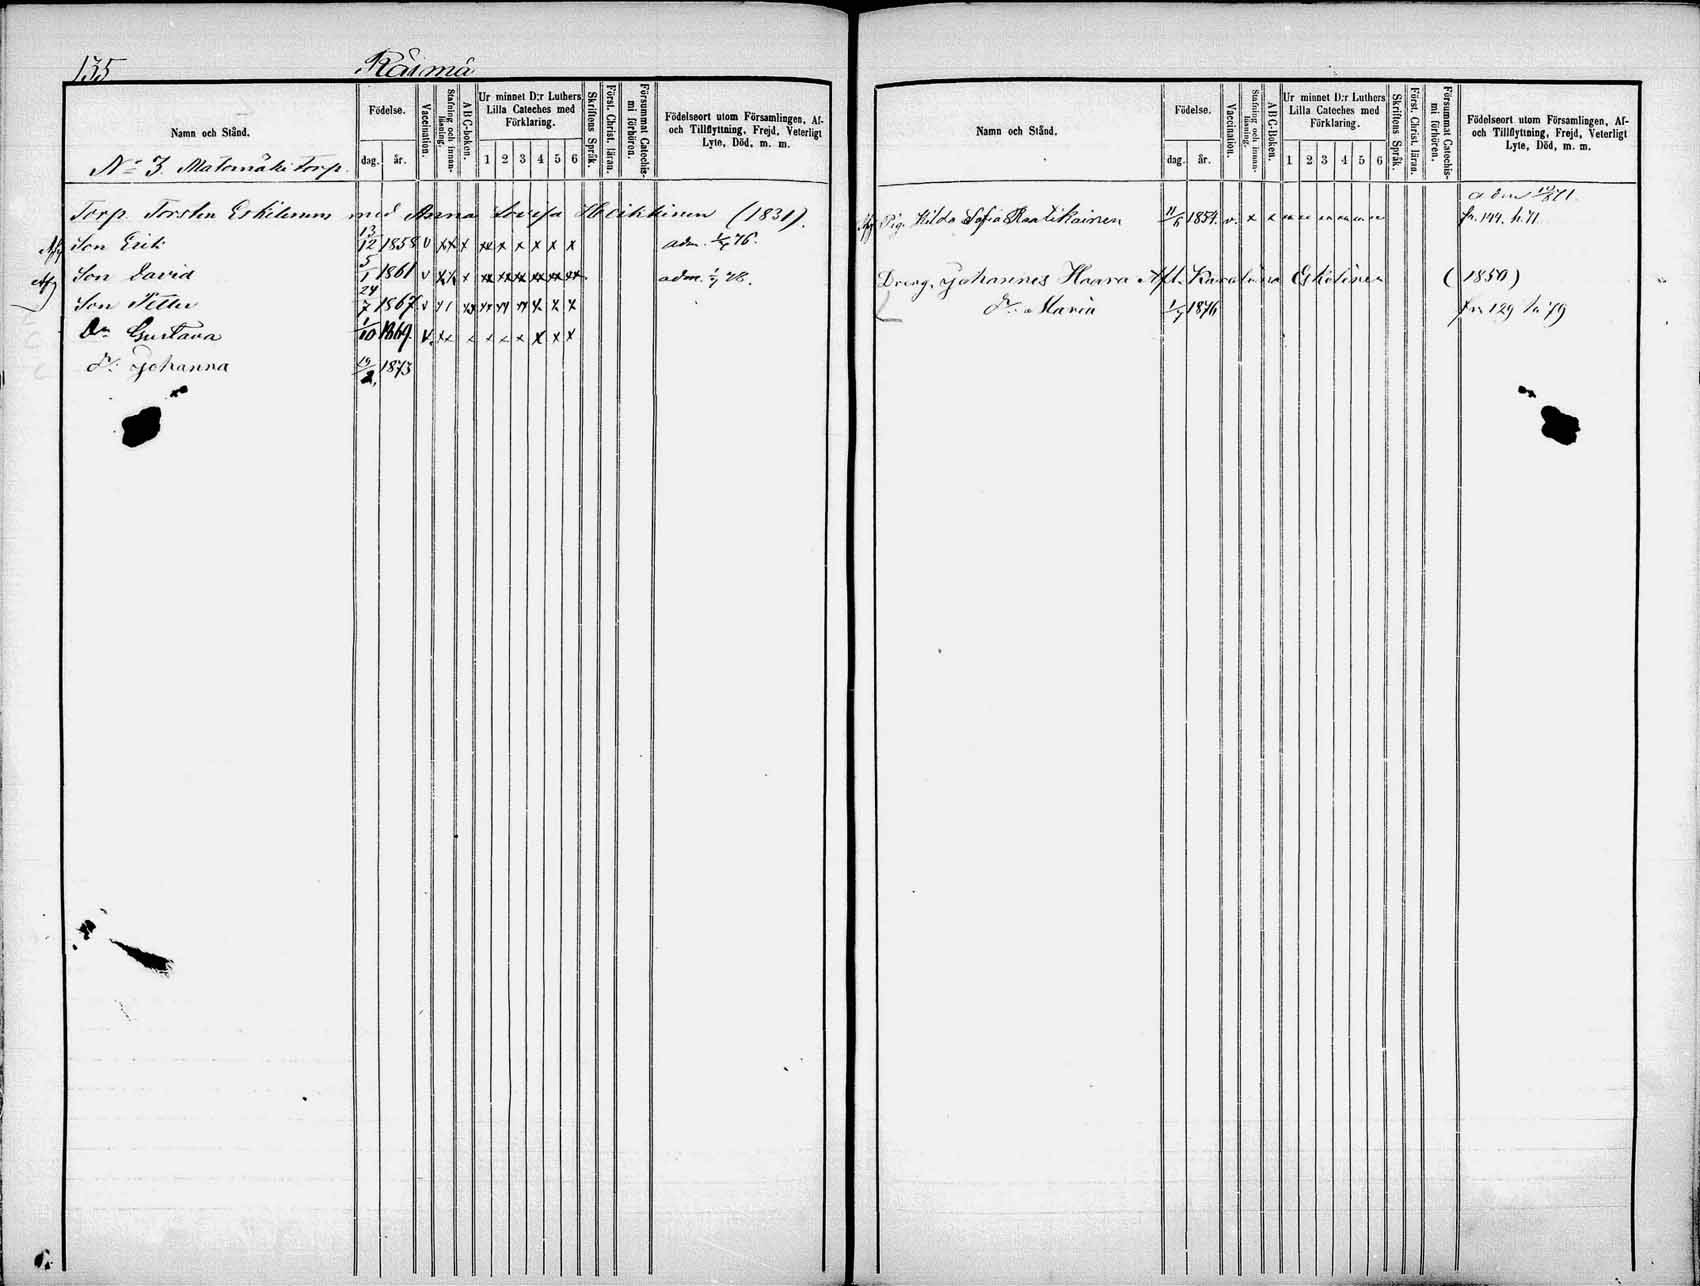 135 Räimä
Namn och Stånd.
Födelse.
dag. år.
Vaccination.
Stafning och innan-läsning.
ABC-boken.
Ur minnet D:r Luthers Lilla Cateches med Förklaring.
1 2 3 4 5 6
Skriftens Språk.
Först. Christ. läran.
Försummat Catechis-mi förhören.
Födelseort utom Församlingen, Af- och Tillflyttning, Frejd, Veterligt Lyte, Död, m. m.
No 3. Matomäki torp.
Torp. Torsten Eskelinens med Anna Lovisa Heikkinen (1831).
Son Erik 13/12 1858 v xx x xx x x x x x adm. 76.
Son David 5/1 1861 v xx x xx xx xx xx xx xx adm. 78.
Son Petter 24/7 1867 v x x x
Dr Gustava 1/10 1869 v. xx x x x x x x x
Dr. Johanna 19/2 1873
Namn och Stånd.
Födelse.
dag. år.
Vaccination.
Stafning och innan-läsning.
ABC-boken.
Ur minnet D:r Luthers Lilla Cateches med Förklaring.
1 2 3 4 5 6
Skriftens Språk.
Först. Christ. läran.
Försummat Catechis-mi förhören.
Födelseort utom Församlingen, Af- och Tillflyttning, Frejd, Veterligt Lyte, Död, m. m.
adm 71.
Pig. Hilda Sofia Raatikainen 1854. v. x x fr. 144. h. 71.
Dreng. Johannes Haara Afl. Karolina Eskelinen (1850)
Dr. Maria 1876 fr. 129 h. 79